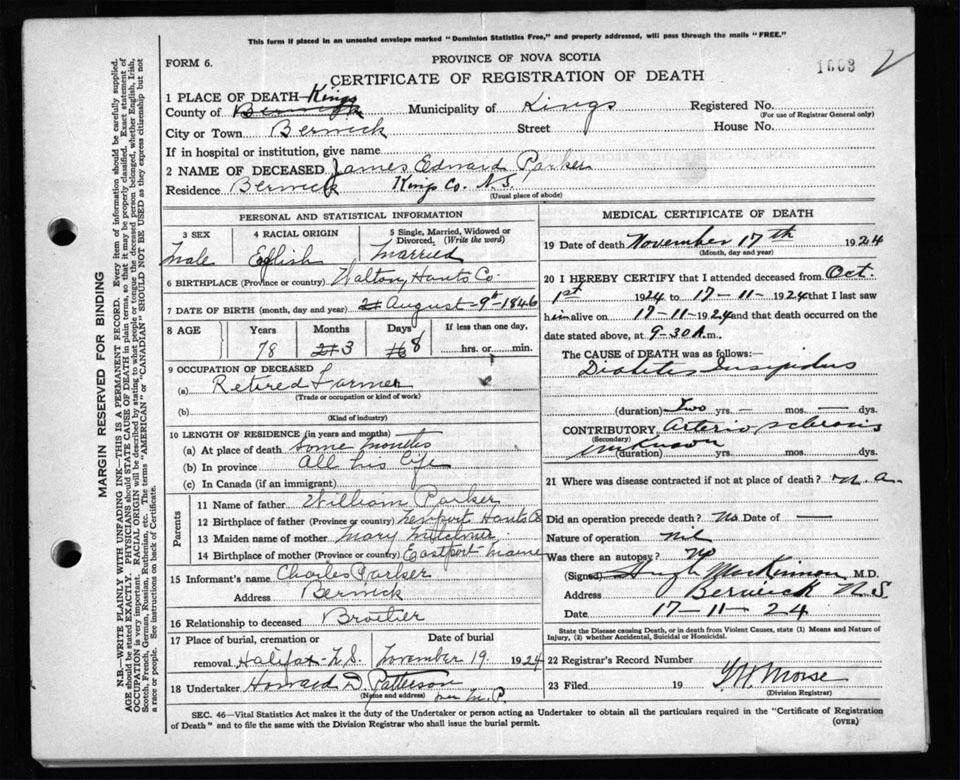 This form if placed in an unsealed envelope marked "Dominion Statistics Free," and properly addressed, will pass through the mails "FREE."
FORM 6.
PROVINCE OF NOVA SCOTIA
1003
CERTIFICATE OF REGISTRATION OF DEATH
1 PLACE OF DEATH— Kings
County of Berwick Municipality of Kings Registered No.
(For use of Registrar General only)
City or Town Berwick Street House No.
If in hospital or institution, give name
2 NAME OF DECEASED James Edward Parker
Residence Berwick Kings Co. N.S.
(Usual place of abode)
PERSONAL AND STATISTICAL INFORMATION
3 SEX 4 RACIAL ORIGIN 5 Single, Married, Widowed or Divorced, (Write the word)
Male English Married
6 BIRTHPLACE (Province or country) Walton Hants Co
7 DATE OF BIRTH (month, day and year) August 9th 1846
8 AGE Years Months Days If less than one day,
78 3 8 hrs. or min.
9 OCCUPATION OF DECEASED
(a) Retired Farmer
(Trade or occupation or kind of work)
(b)
(Kind of industry)
10 LENGTH OF RESIDENCE (in years and months)
(a) At place of death Some months
(b) In province All his life
(c) In Canada (if an immigrant)
Parents
11 Name of father William Parker
12 Birthplace of father (Province or country) Newport Hants Co
13 Maiden name of mother Mary
14 Birthplace of mother (Province or country) Eastport Maine
15 Informant's name Charles Parker
Address Berwick
16 Relationship to deceased Brother
17 Place of burial, cremation or Date of burial
removal Halifax N.S. November 19 1924
18 Undertaker Howard D. Patterson
(Name and address) per M.P.
MEDICAL CERTIFICATE OF DEATH
19 Date of death November 17th 1924
(Month, day and year)
20 I HEREBY CERTIFY that I attended deceased from Oct.
1st 1924 to 17-11- 1924 that I last saw
him alive on 17-11- 1924 and that death occurred on the
date stated above, at 9-30 A.m.
The CAUSE of DEATH was as follows:—
Diabetes Insipidus
(duration) Two yrs. — mos. — dys.
CONTRIBUTORY Arterio sclerosis
(Secondary) unknown
(duration) yrs. mos. dys.
21 Where was disease contracted if not at place of death? n.a.
Did an operation precede death? No Date of —
Nature of operation Nil
Was there an autopsy? No
(Signed) Hugh MacKinnon, M.D.
Address Berwick N.S.
Date 17-11-24
State the Disease causing Death, or in death from Violent Causes, state (1) Means and Nature of
Injury, (2) whether Accidental, Suicidal or Homicidal.
22 Registrar's Record Number
23 Filed 19 Morse
(Division Registrar)
SEC. 46—Vital Statistics Act makes it the duty of the Undertaker or person acting as Undertaker to obtain all the particulars required in the "Certificate of Registration
of Death" and to file the same with the Division Registrar who shall issue the burial permit.
(OVER)
MARGIN RESERVED FOR BINDING
N.B.—WRITE PLAINLY WITH UNFADING INK—THIS IS A PERMANENT RECORD. Every item of information should be carefully supplied.
AGE should be stated EXACTLY. PHYSICIANS should STATE CAUSE OF DEATH in plain terms, so that it may be properly classified. Exact statement of
OCCUPATION is very important. RACIAL ORIGIN will be described by stating to what people or tongue the deceased person belonged, whether English, Irish,
Scotch, French, German, Russian, Ruthenian, etc. The terms "AMERICAN" or "CANADIAN" SHOULD NOT BE USED as they express citizenship but not
a race or people. See instructions on back of Certificate.